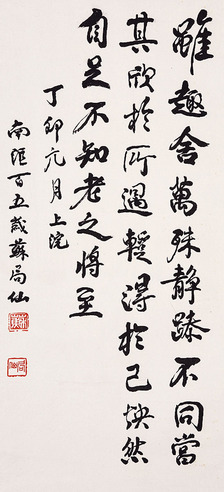 雖趣舍萬殊靜躁不同當
其欣於所遇輕得於己怏然
自足不知老之將至
丁卯元月上浣
南匯百五歲蘇局仙